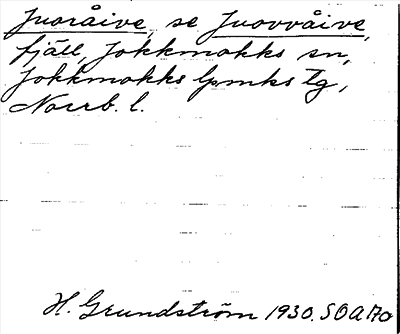 Juoråive, se Juovvåive,
fjäll, Jokkmokks sn,
Jokkmokks lpmks tg,
Norrb. l.
H. Grundström 1930. SOA 170